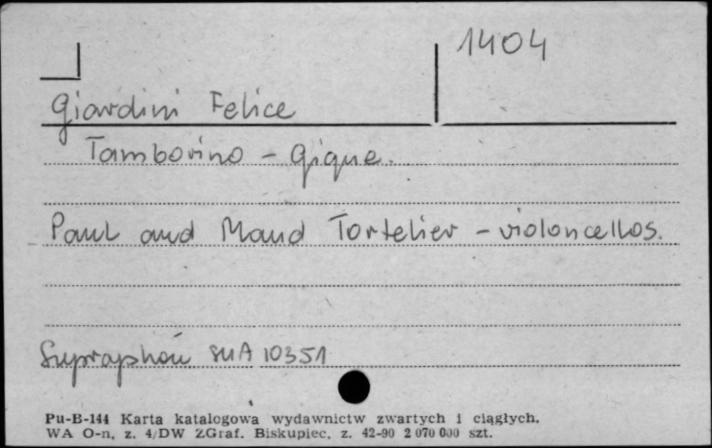 1404
Giardini Felice
Tamborino - Gique.
Paul and Maud Tortelier - violoncellos.
Supraphon SUA 10351
Pu-B-144 Karta katalogowa wydawnictw zwartych i ciągłych.
WA O-n, z. 4/DW ZGraf. Biskupiec, z. 42-90 2 070 000 szt.